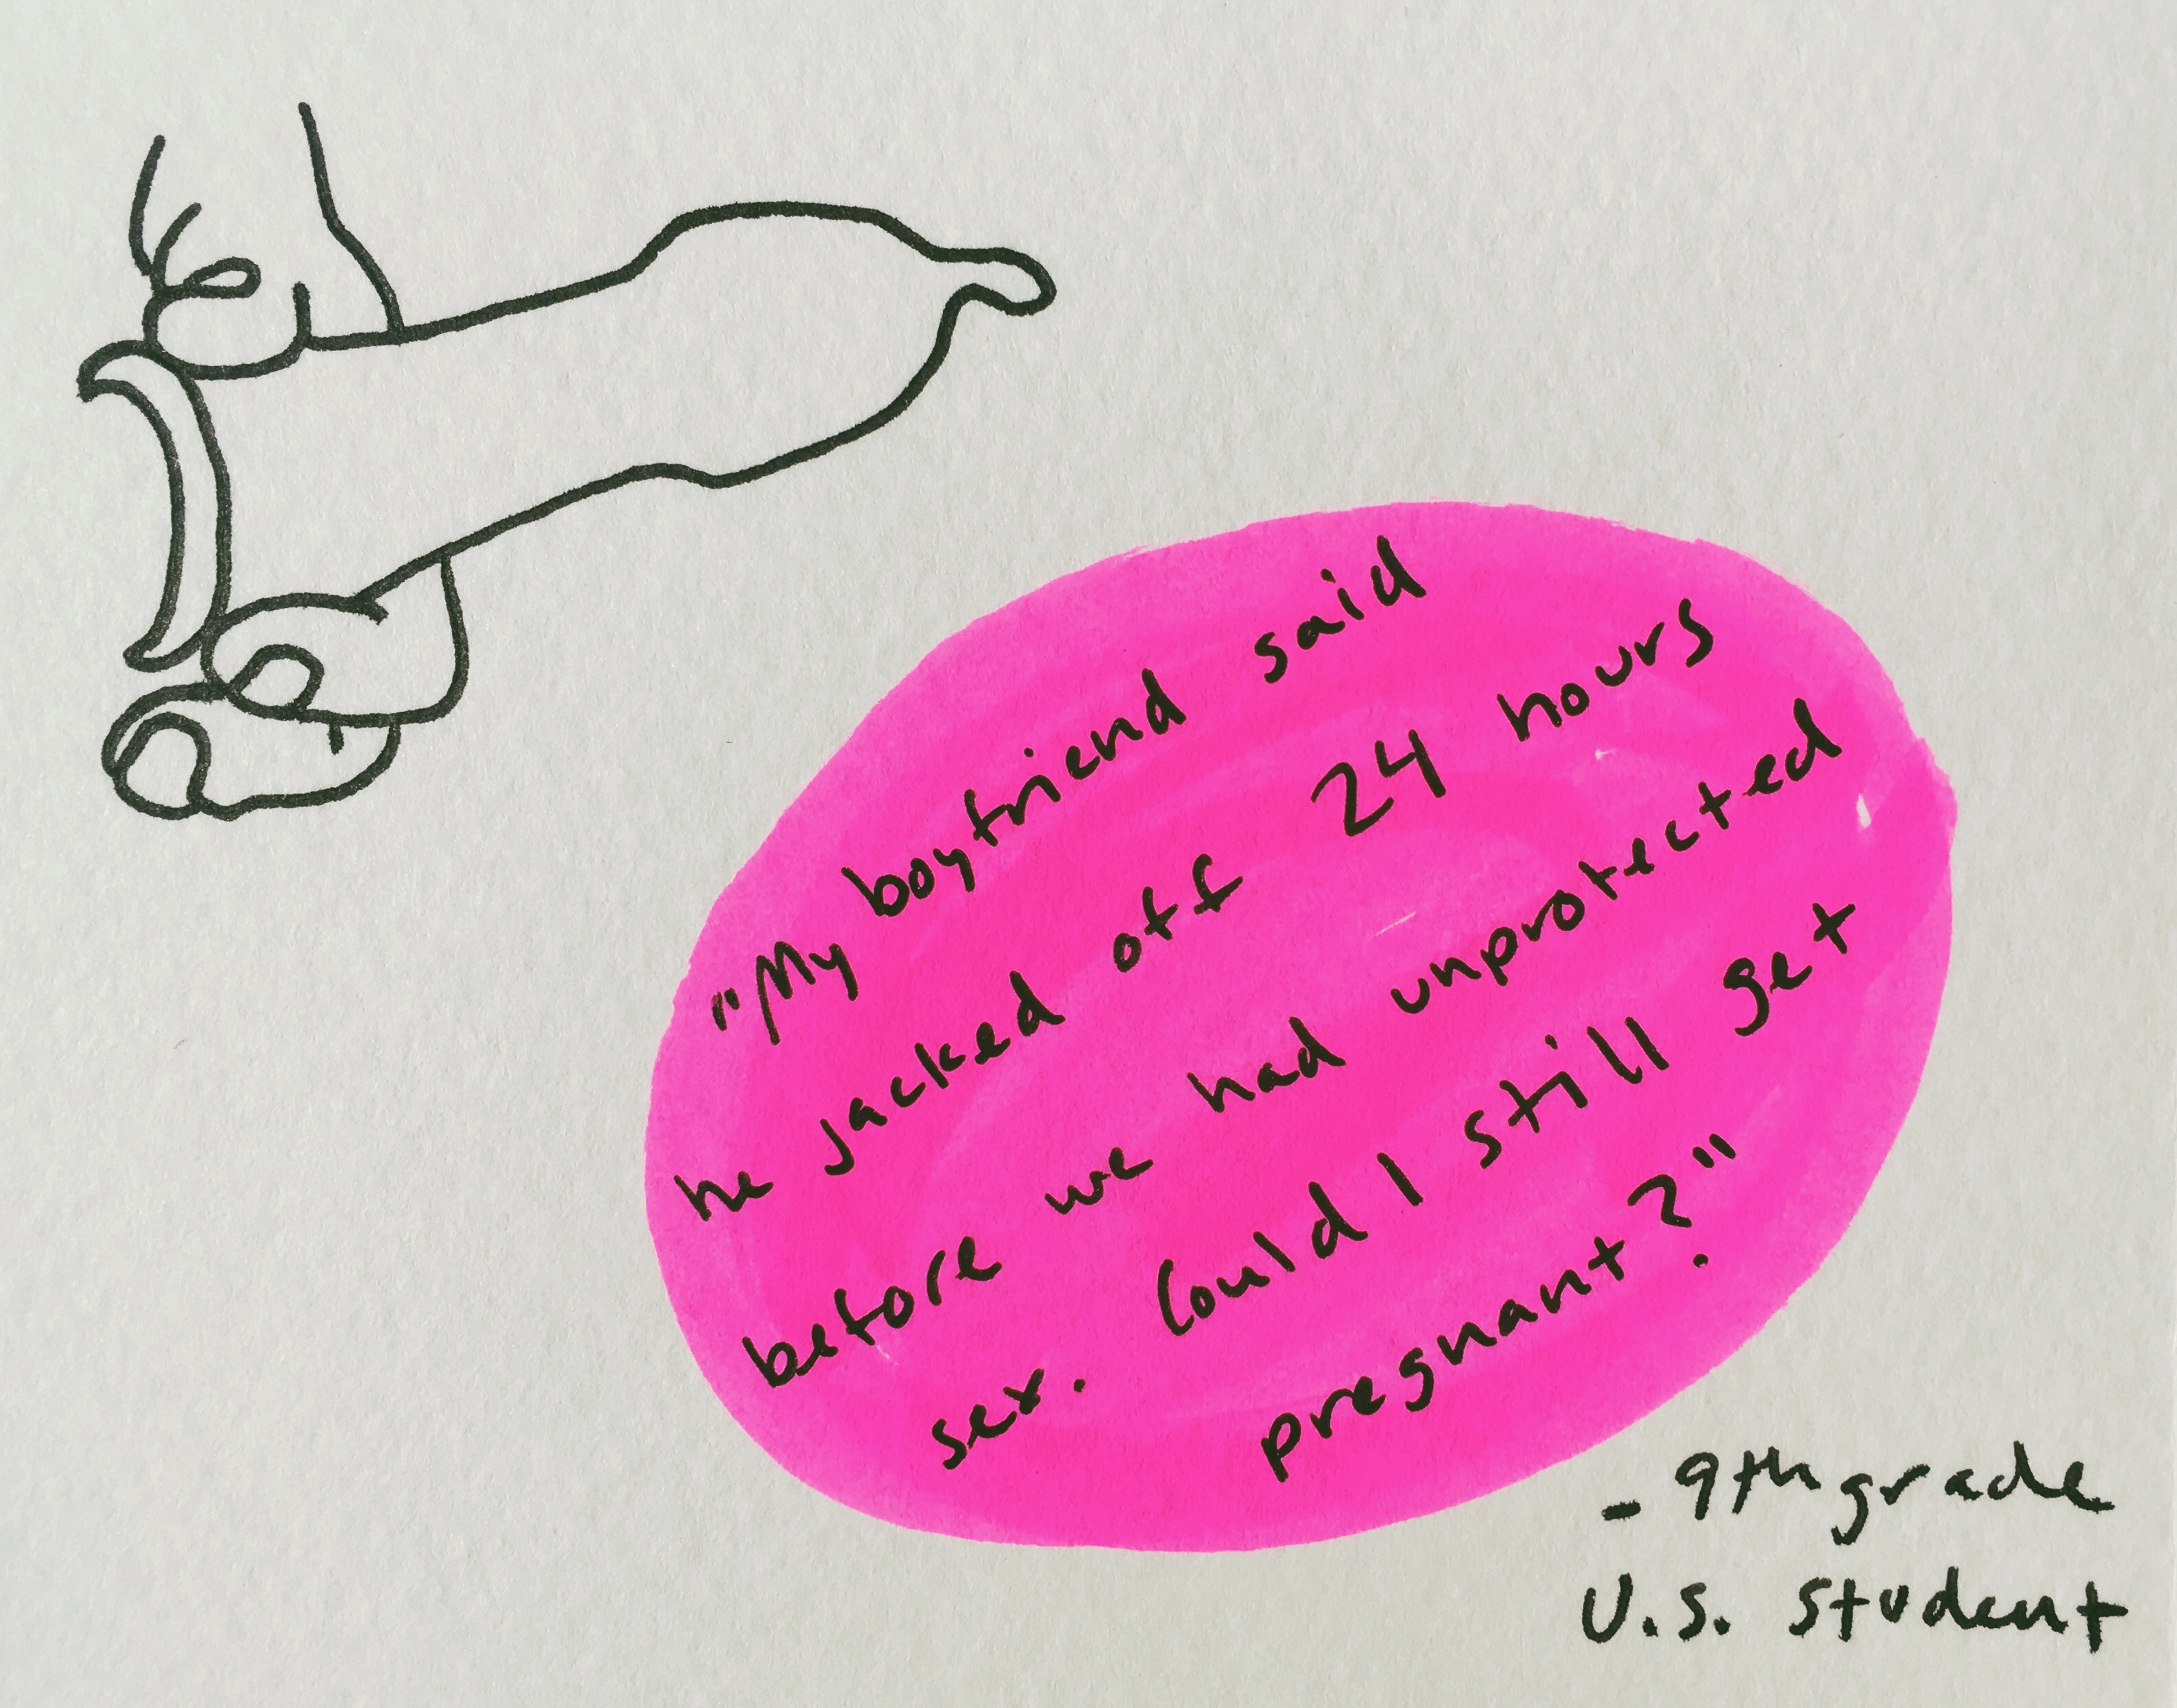 "My boyfriend said
he jacked off 24 hours
before we had unprotected
sex. Could I still get
pregnant?"
- 9th grade
U.S. student